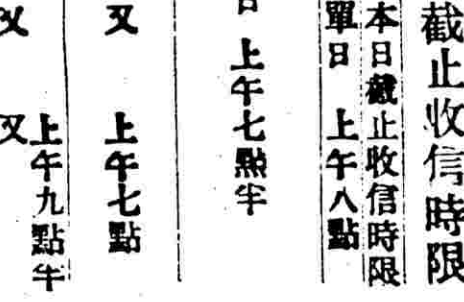 截止收信時限
本日截止收信時限
單日 上午八點
日 上午七點半
又 上午七點
又 上午九點半
又